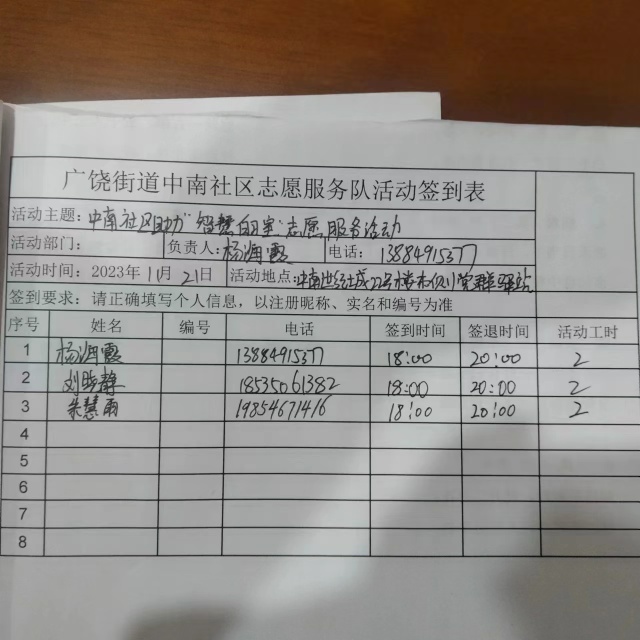 广饶街道中南社区志愿服务队活动签到表
活动主题：中南社区助力"智慧自习室"志愿服务活动
活动部门： 负责人：杨海霞 电话：13884915377
活动时间：2023年11月21日 活动地点：中南世纪城22号楼东侧党群驿站
签到要求：请正确填写个人信息，以注册昵称、实名和编号为准
序号 姓名 编号 电话 签到时间 签退时间 活动工时
1 杨海霞 13884915377 18:00 20:00 2
2 刘晓静 18535061382 18:00 20:00 2
3 朱慧雨 19854671416 18:00 20:00 2
4
5
6
7
8